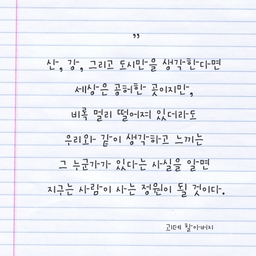 ”
산, 강, 그리고 도시만을 생각한다면
세상은 공허한 곳이지만,
비록 멀리 떨어져 있더라도
우리와 같이 생각하고 느끼는
그 누군가가 있다는 사실을 알면
지구는 사람이 사는 정원이 될 것이다.
괴테 할아버지